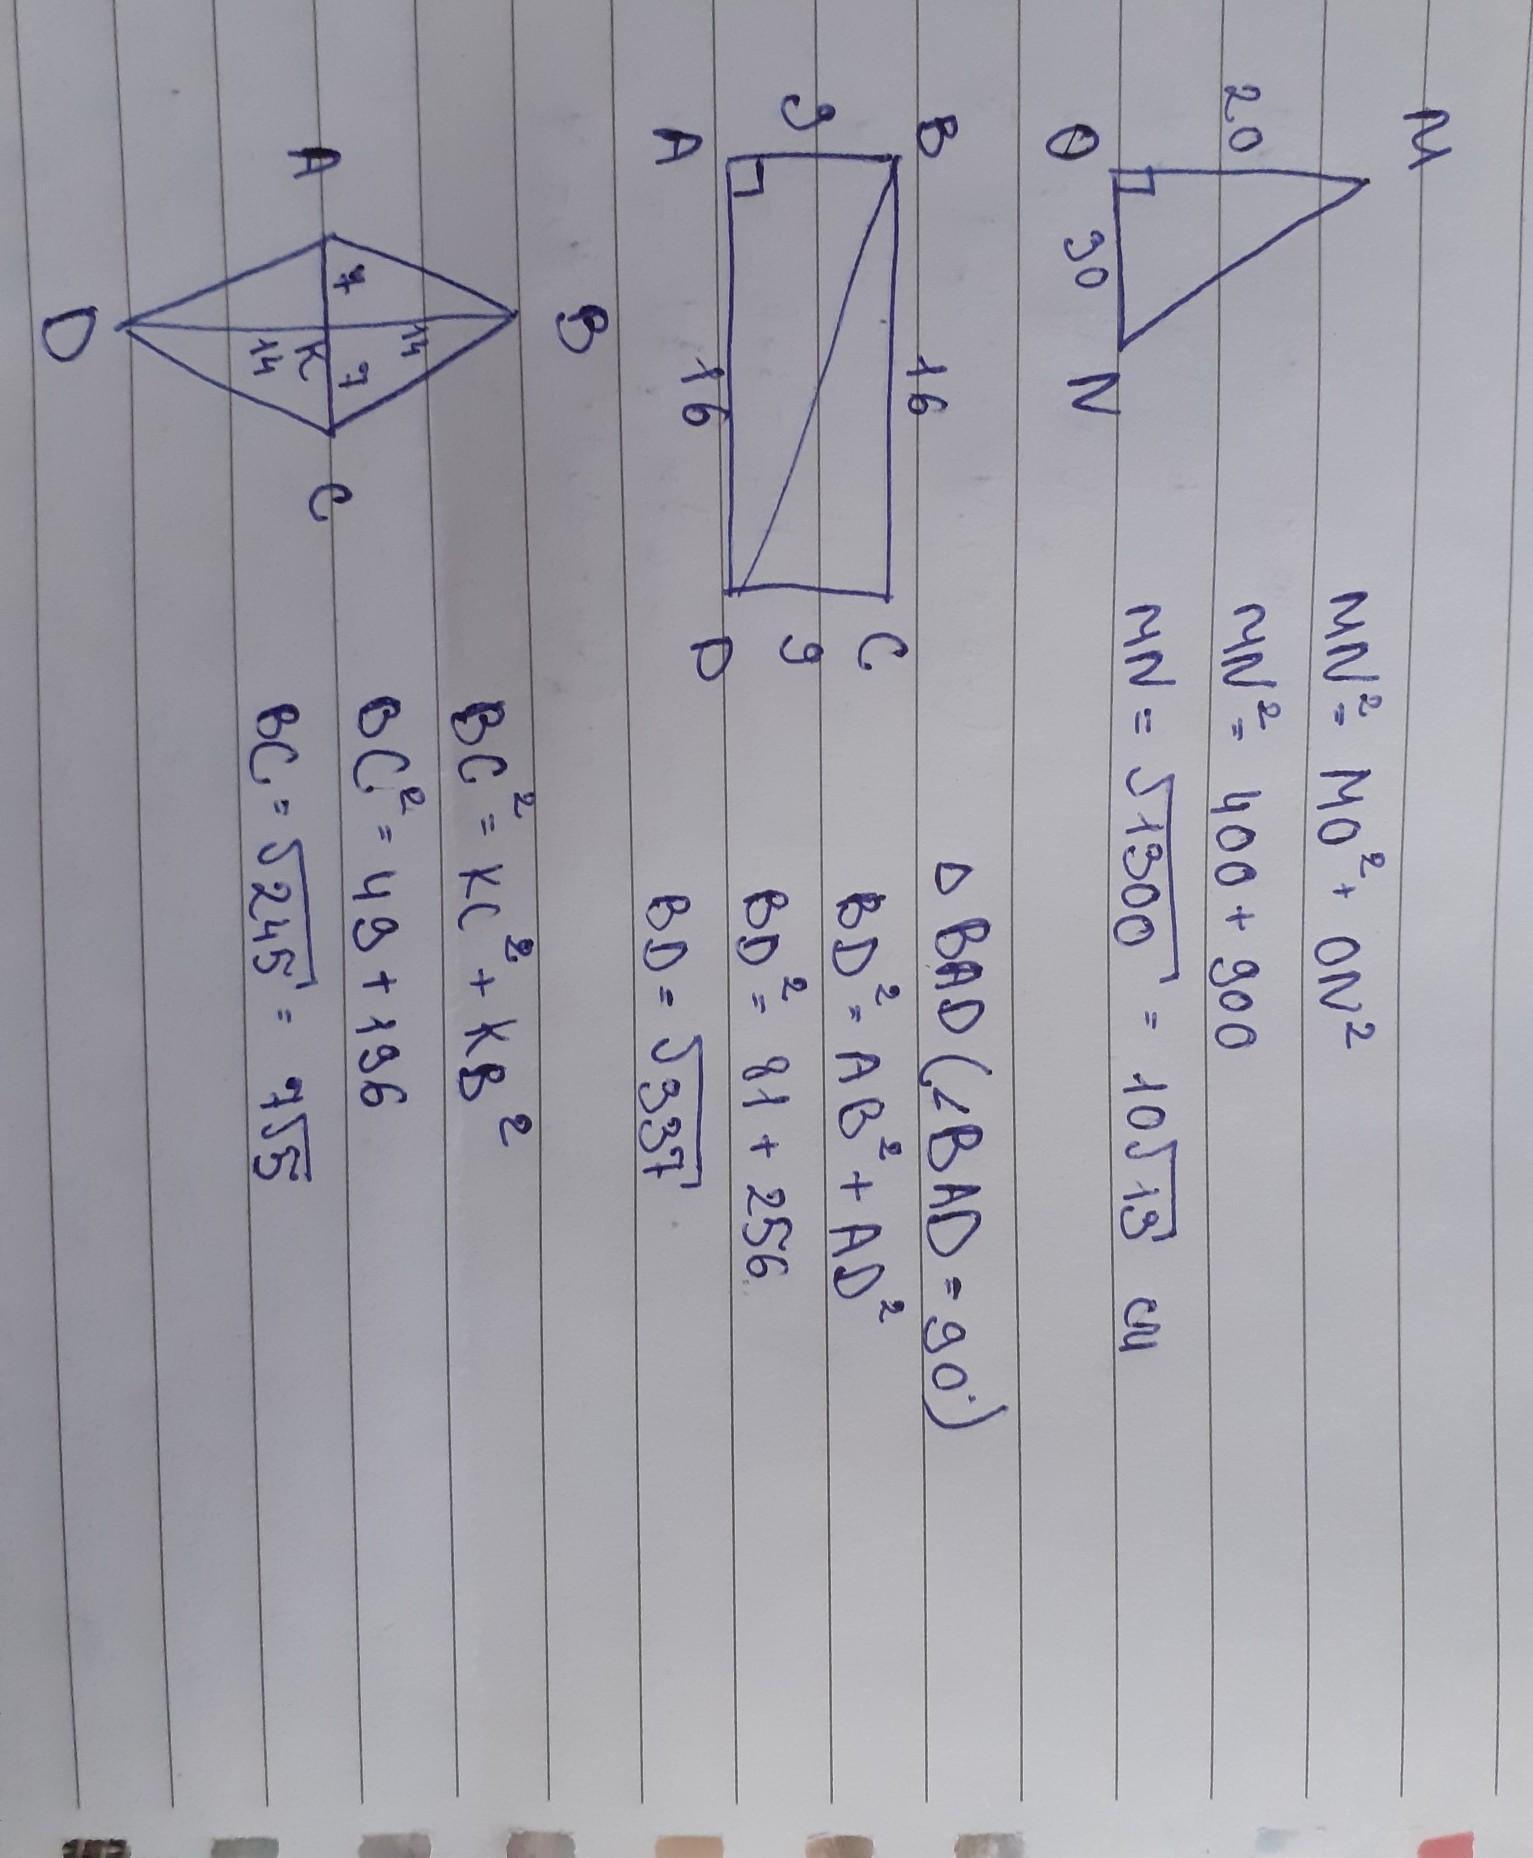 M
20
O
30
N
MN² = MO² + ON²
MN² = 400 + 900
MN = √1300 = 10√13 см
B
16
C
9
9
A
16
D
△ BAD (∠BAD = 90°)
BD² = AB² + AD²
BD² = 81 + 256
BD = √337
B
14
A
7
7
C
K
14
D
BC² = KC² + KB²
BC² = 49 + 196
BC = √245 = 7√5